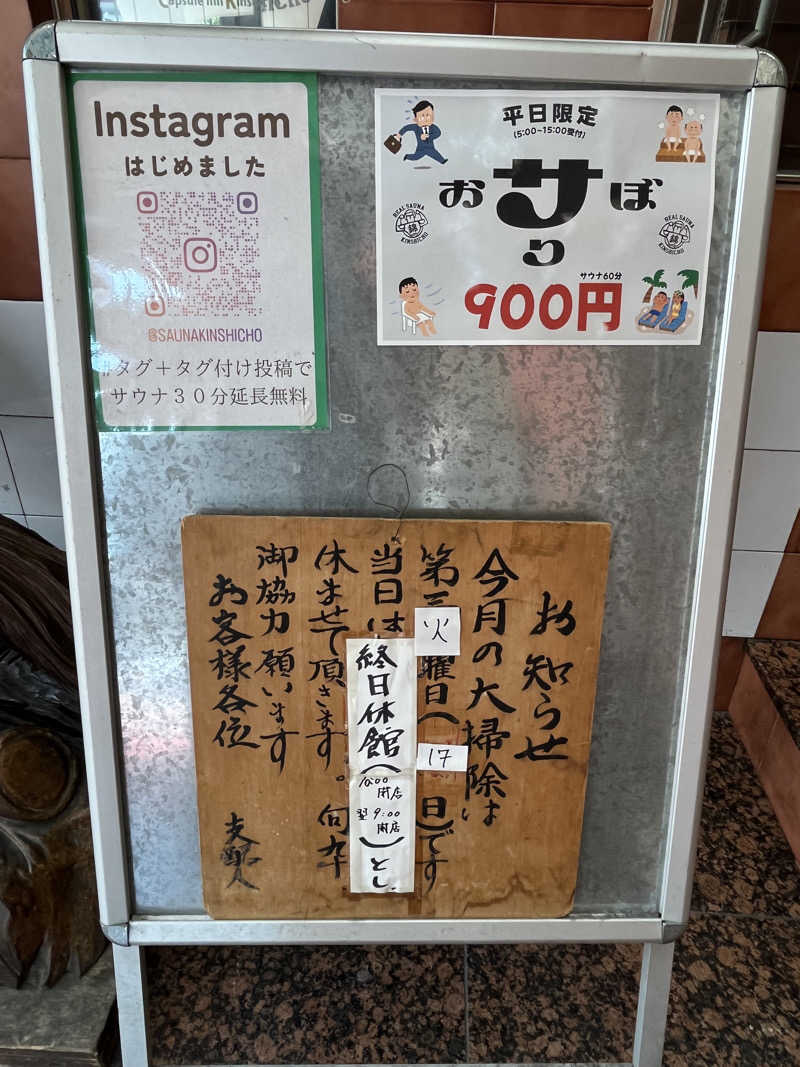 Instagram
はじめました
@SAUNAKINSHICHO
#タグ＋タグ付け投稿で
サウナ30分延長無料
平日限定
(5:00~15:00受付)
おサぼり
REAL SAUNA
錦
KINSHICHO
REAL SAUNA
錦
KINSHICHO
サウナ60分
900円
お知らせ
今月の大掃除は
第三火曜日（17日）です
当日は終日休館（10:00閉店 翌9:00開店）とし
休ませて頂きます。何卒
御協力願います
お客様各位
支配人